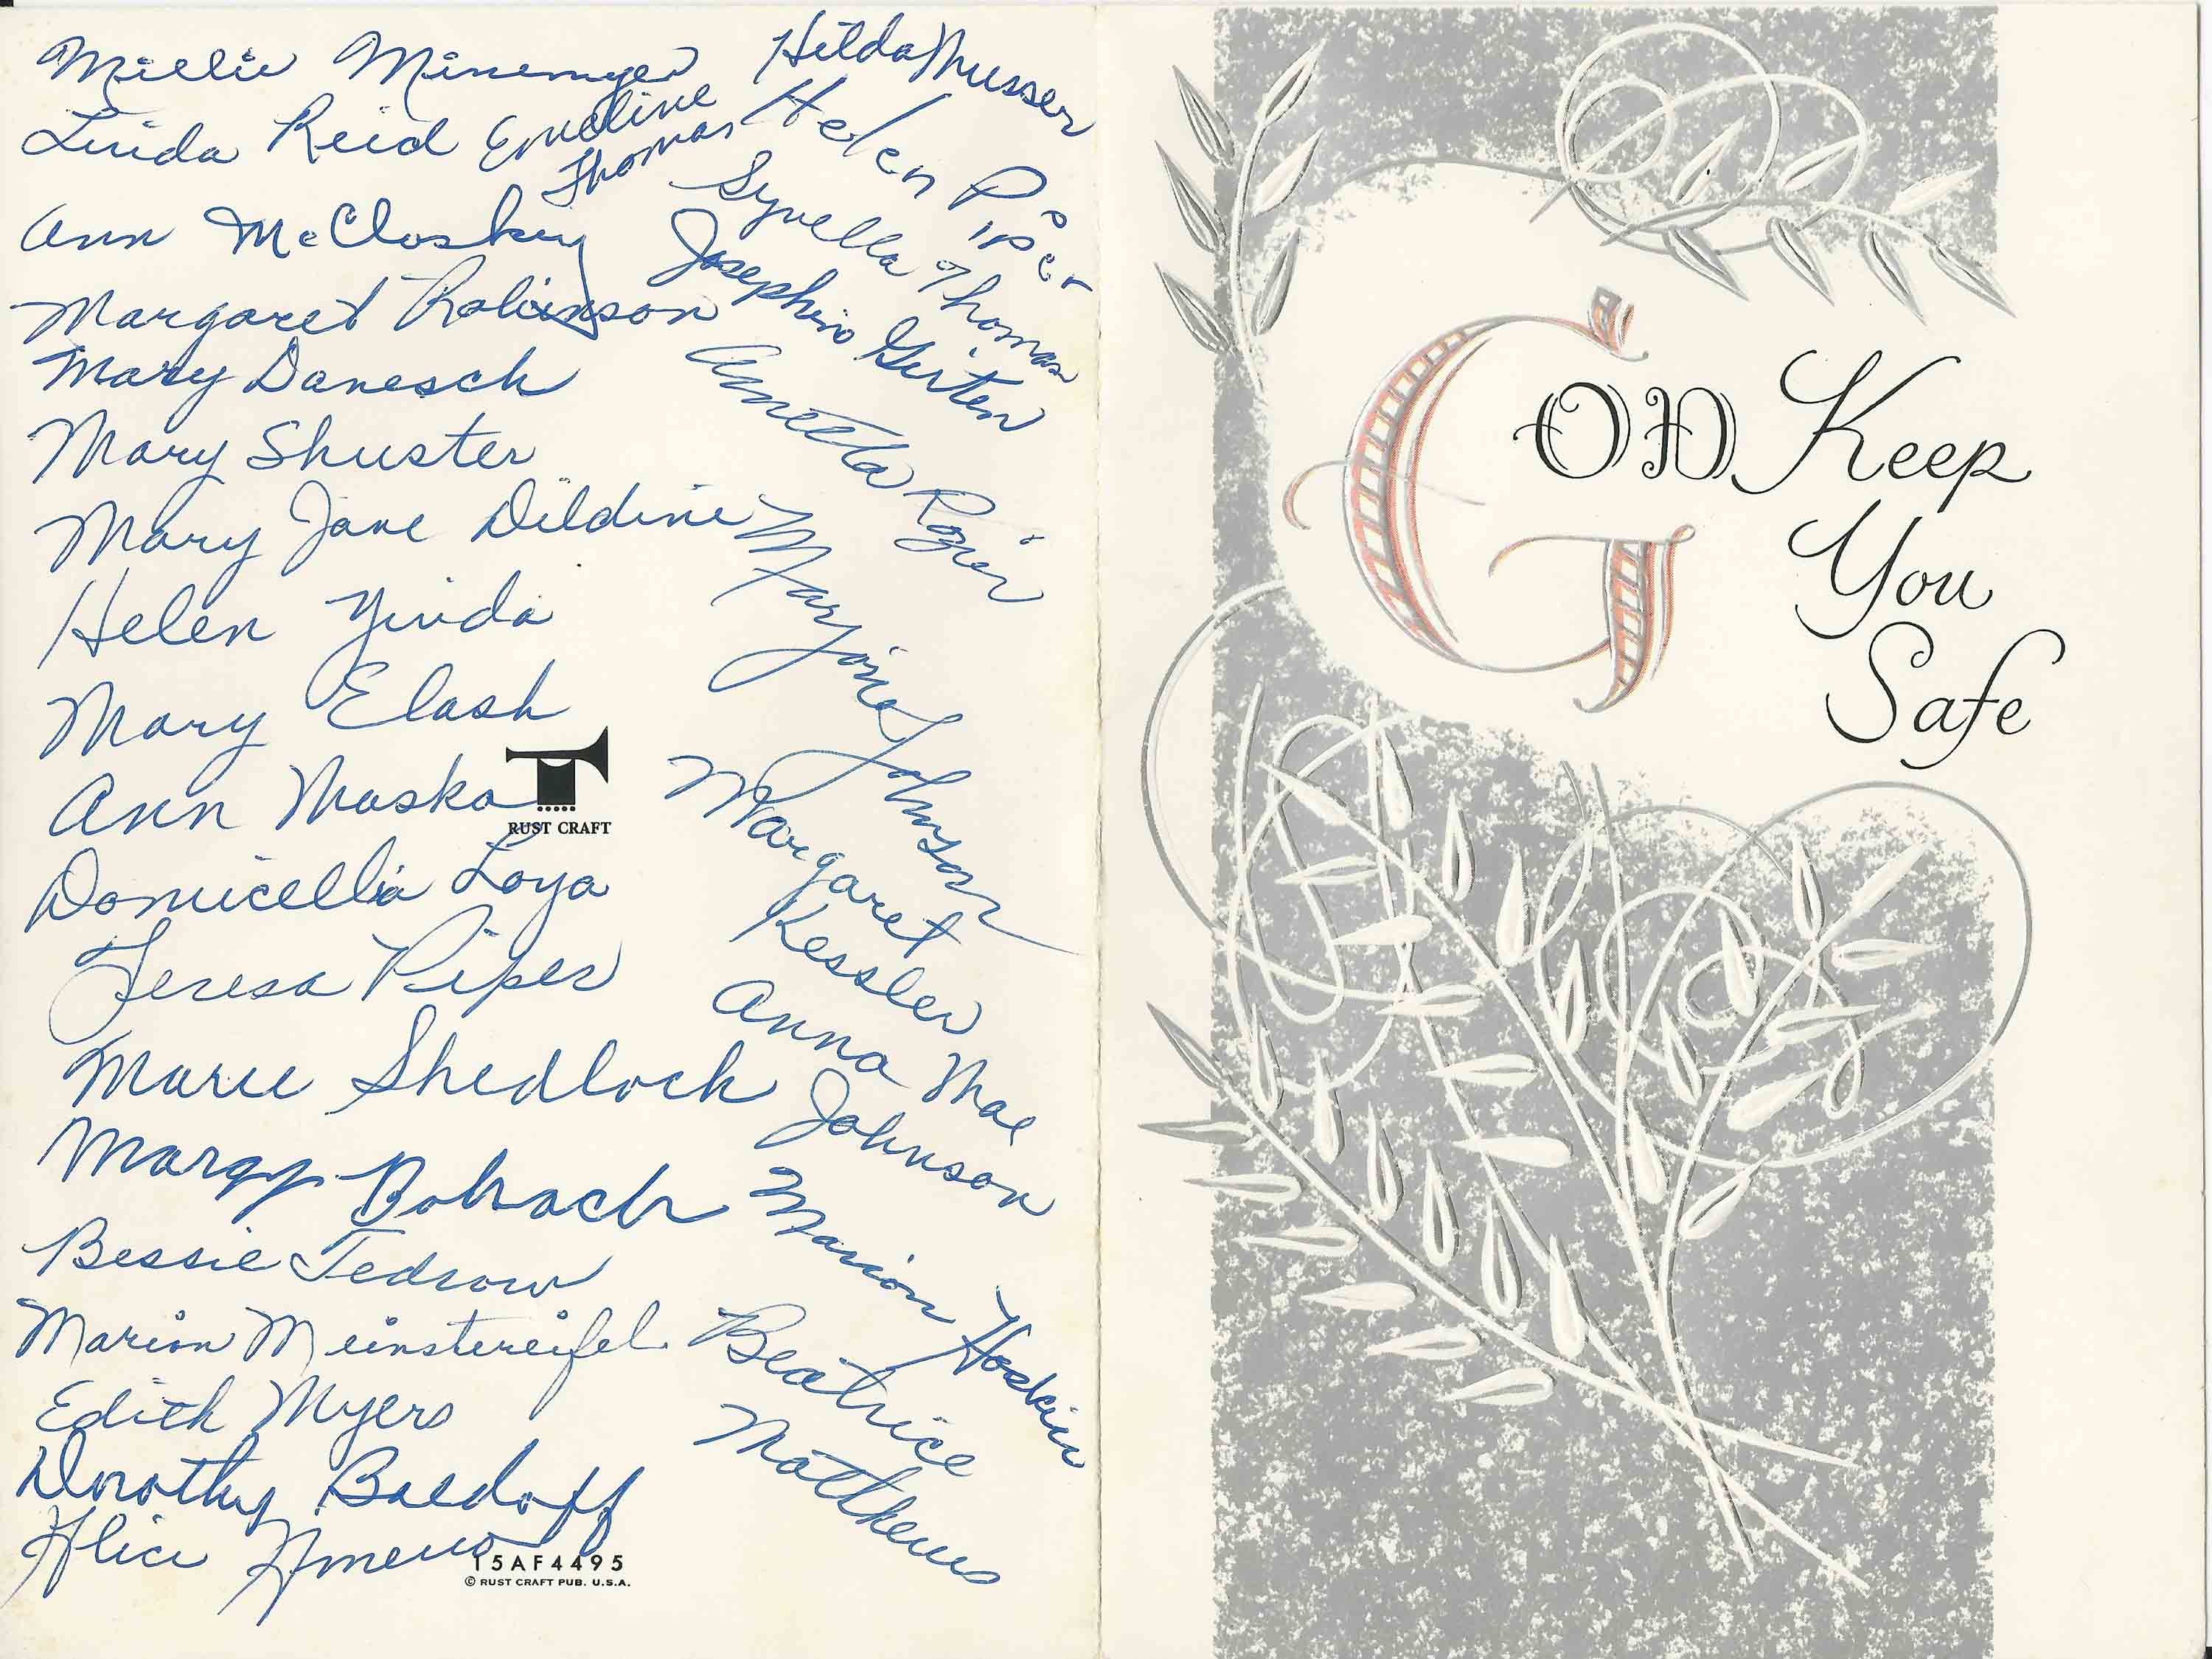 Millie Minemyer
Linda Reid
Emeline
Thomas
Ann McCloskey
Margaret Robinson
Mary Danesch
Mary Shuster
Mary Jane Dildine
Helen Yinda
Mary Elash
Ann Maska
RUST CRAFT
Domicella Loya
Teresa Piper
Marie Shedlock
Margy
Bessie Tedrow
Marion Meinstereifel
Edith Myers
Dorothy Baldoff
Alice
15AF4495
© RUST CRAFT PUB. U.S.A.
Hilda Musser
Helen Piper
Syvella Thomas
Josephine Girten
Annetta Rozier
Marjorie Johnson
Margaret
Kessler
Anna Mae
Johnson
Marion Hoskin
Beatrice
Matthews
GOD Keep
You
Safe